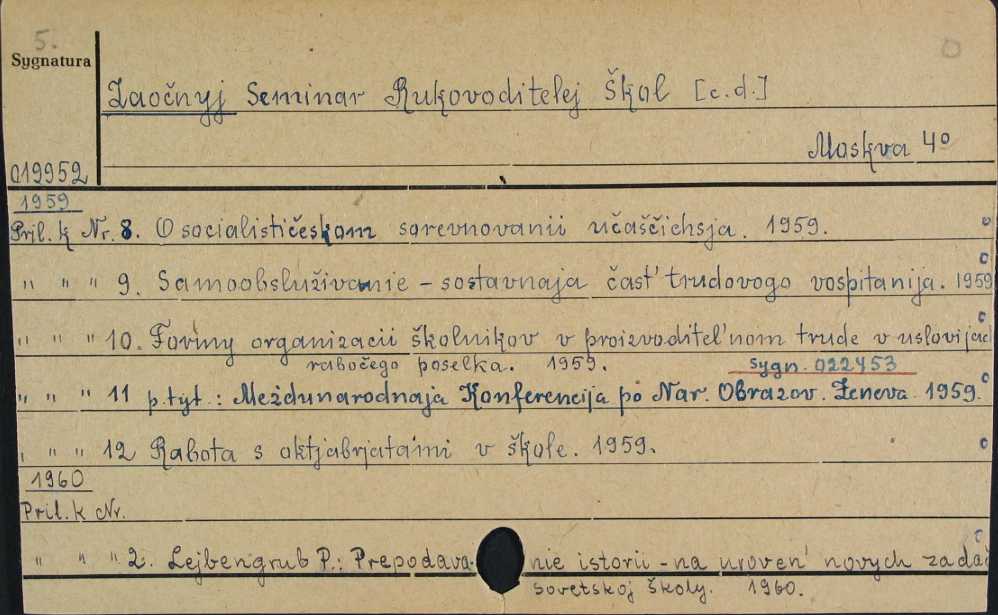 5.
Sygnatura
Zaočnyj Seminar Rukovoditelej Škol [c.d.]
Moskva 4º
019952
1959
Pril. k Nr. 8. O socialističeskom sorevnovanii učaščichsja. 1959.
" " " 9. Samoobsluživanie – sostavnaja čast' trudovogo vospitanija. 1959
" " " 10. Formy organizacii školnikov v proizvoditel'nom trude v uslovijach
rabočego poselka. 1959. sygn. 022453
" " " 11 p. tyt.: Meždunarodnaja Konferencija po Nar. Obrazov. Ženeva. 1959.
" " " 12 Rabota s oktjabrjatami v škole. 1959.
1960
Pril. k Nr.
" " " 2. Lejbengrub P.: Prepodavanie istorii – na uroven' novych zadač
sovetskoj školy. 1960.